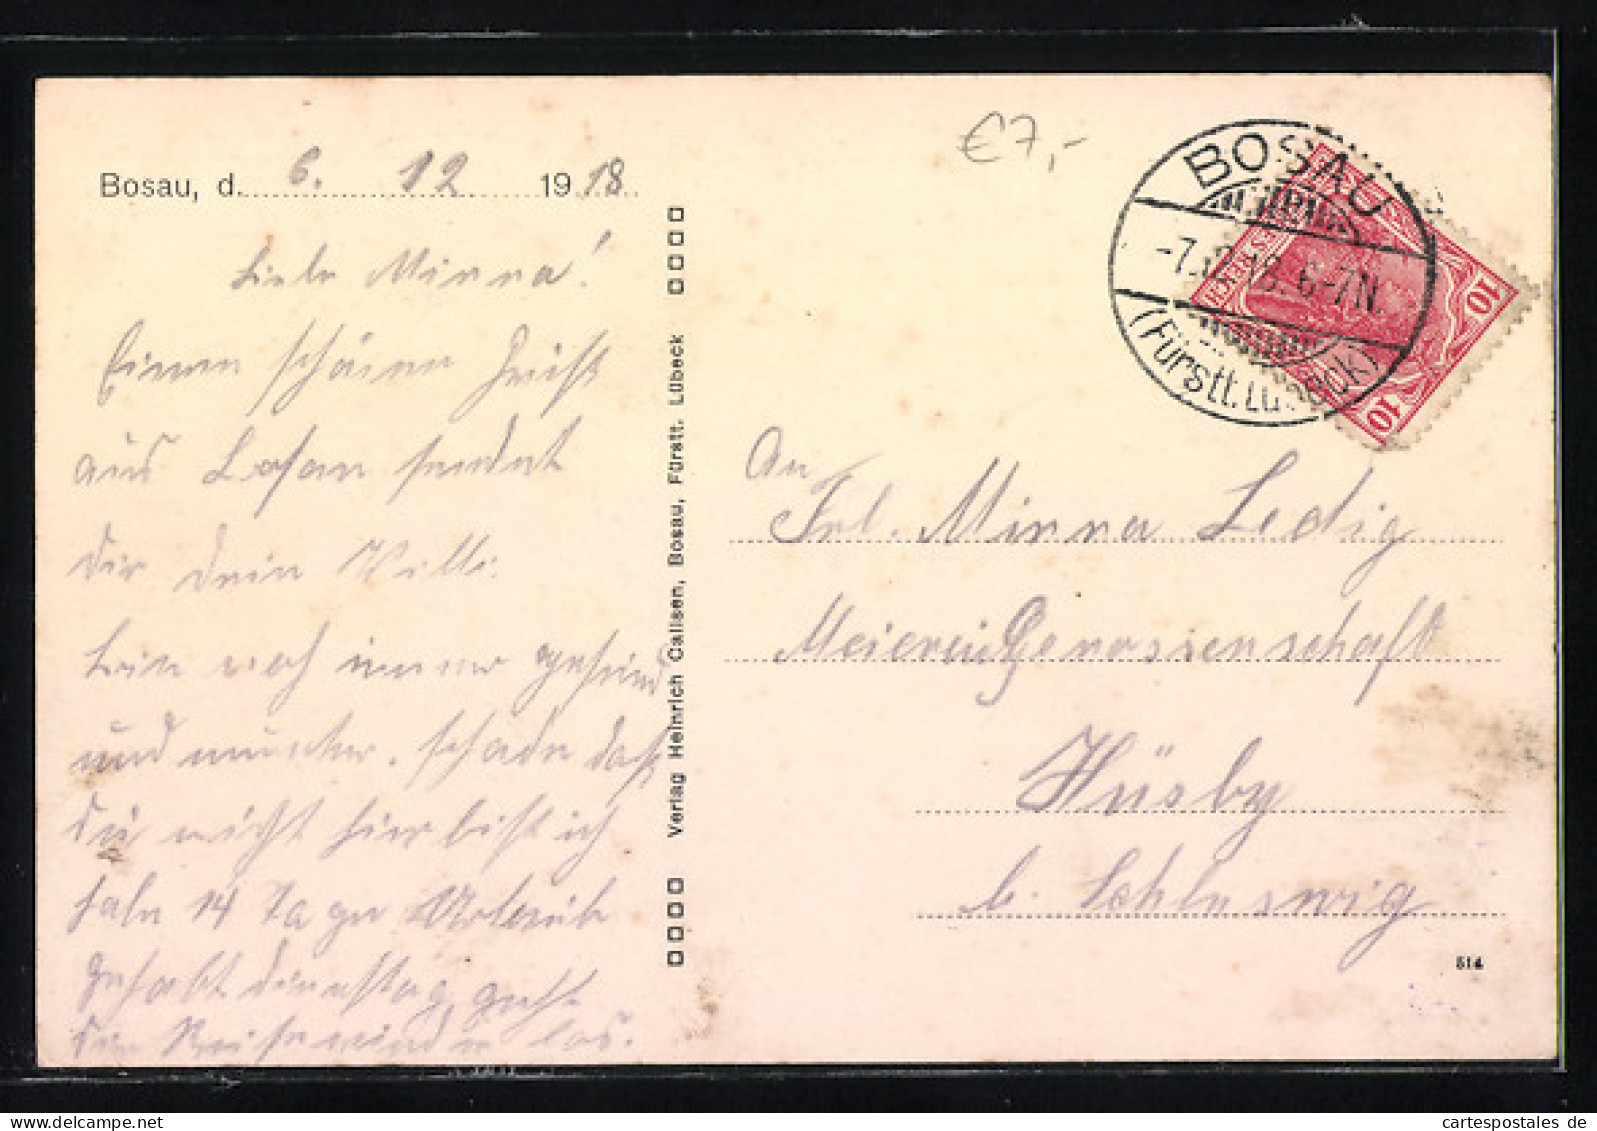 Bosau, d. 6. 12 1918
Liebe Minna!
Einen schönen Gruß
aus Bosau sendet
dir dein Willi.
bin noch immer gesund
und munter. schade daß
du nicht hier bist ich
habe 14 Tage Urlaub
gehabt dienstag geht
die Reise wieder los.
Verlag Heinrich Callsen, Bosau, Fürstt. Lübeck
€7,-
BOSAU
-7.12.18. 6-7N.
(Fürstt. Lübeck)
10
10
An
Frl. Minna Ledig
Meierei Genossenschaft
Hüsby
b. Schleswig
514
cartespostales de